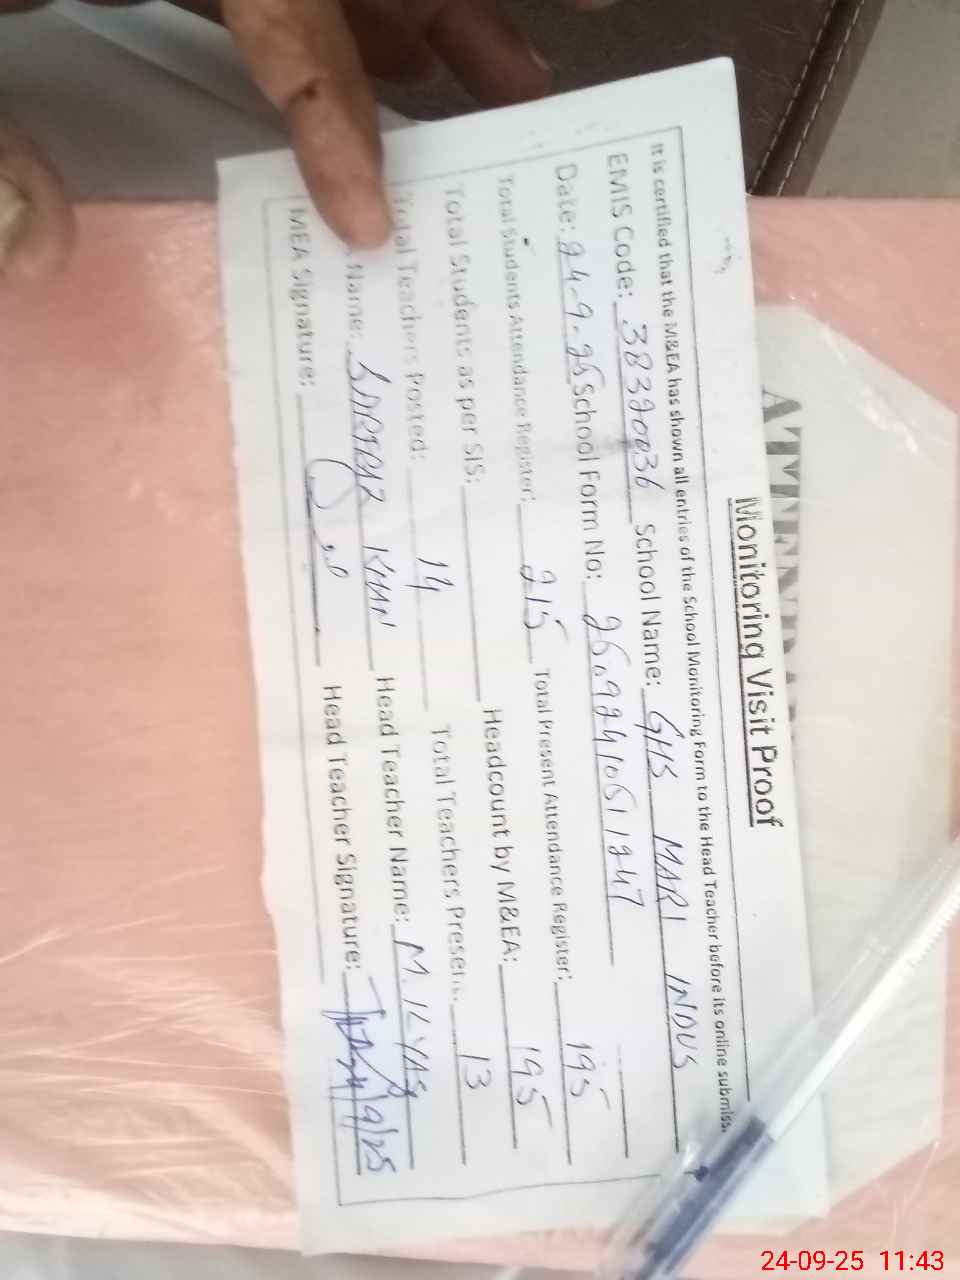 Monitoring Visit Proof
It is certified that the M&EA has shown all entries of the School Monitoring Form to the Head Teacher before its online submiss
EMIS Code: 38320036 School Name: GHS MARI INDUS
Date: 24-9-25 School Form No:
Total Students Attendance Register: 215 Total Present Attendance Register: 195
Total Students as per SIS: Headcount by M&EA: 195
Total Teachers Posted: 14 Total Teachers Present: 13
Name: SARFRAZ KHAN Head Teacher Name: M. ILYAS
MEA Signature: Head Teacher Signature: 24/9/25
24-09-25 11:43